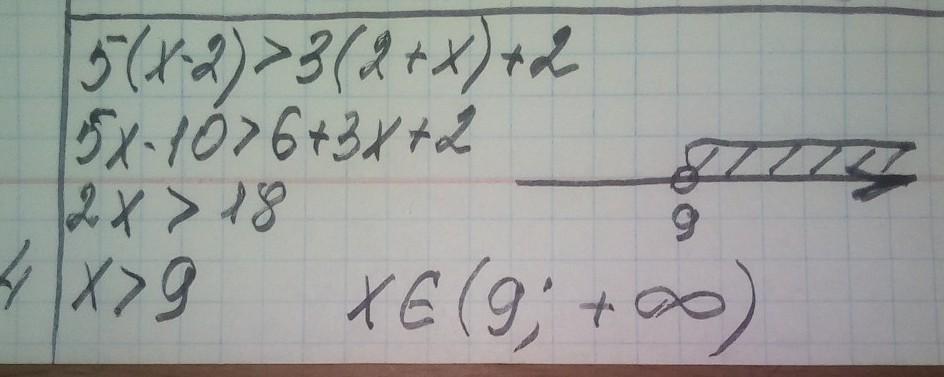 5(x-2)>3(2+x)+2
5x-10>6+3x+2
2x>18
9
x>9
x∈(9; +∞)